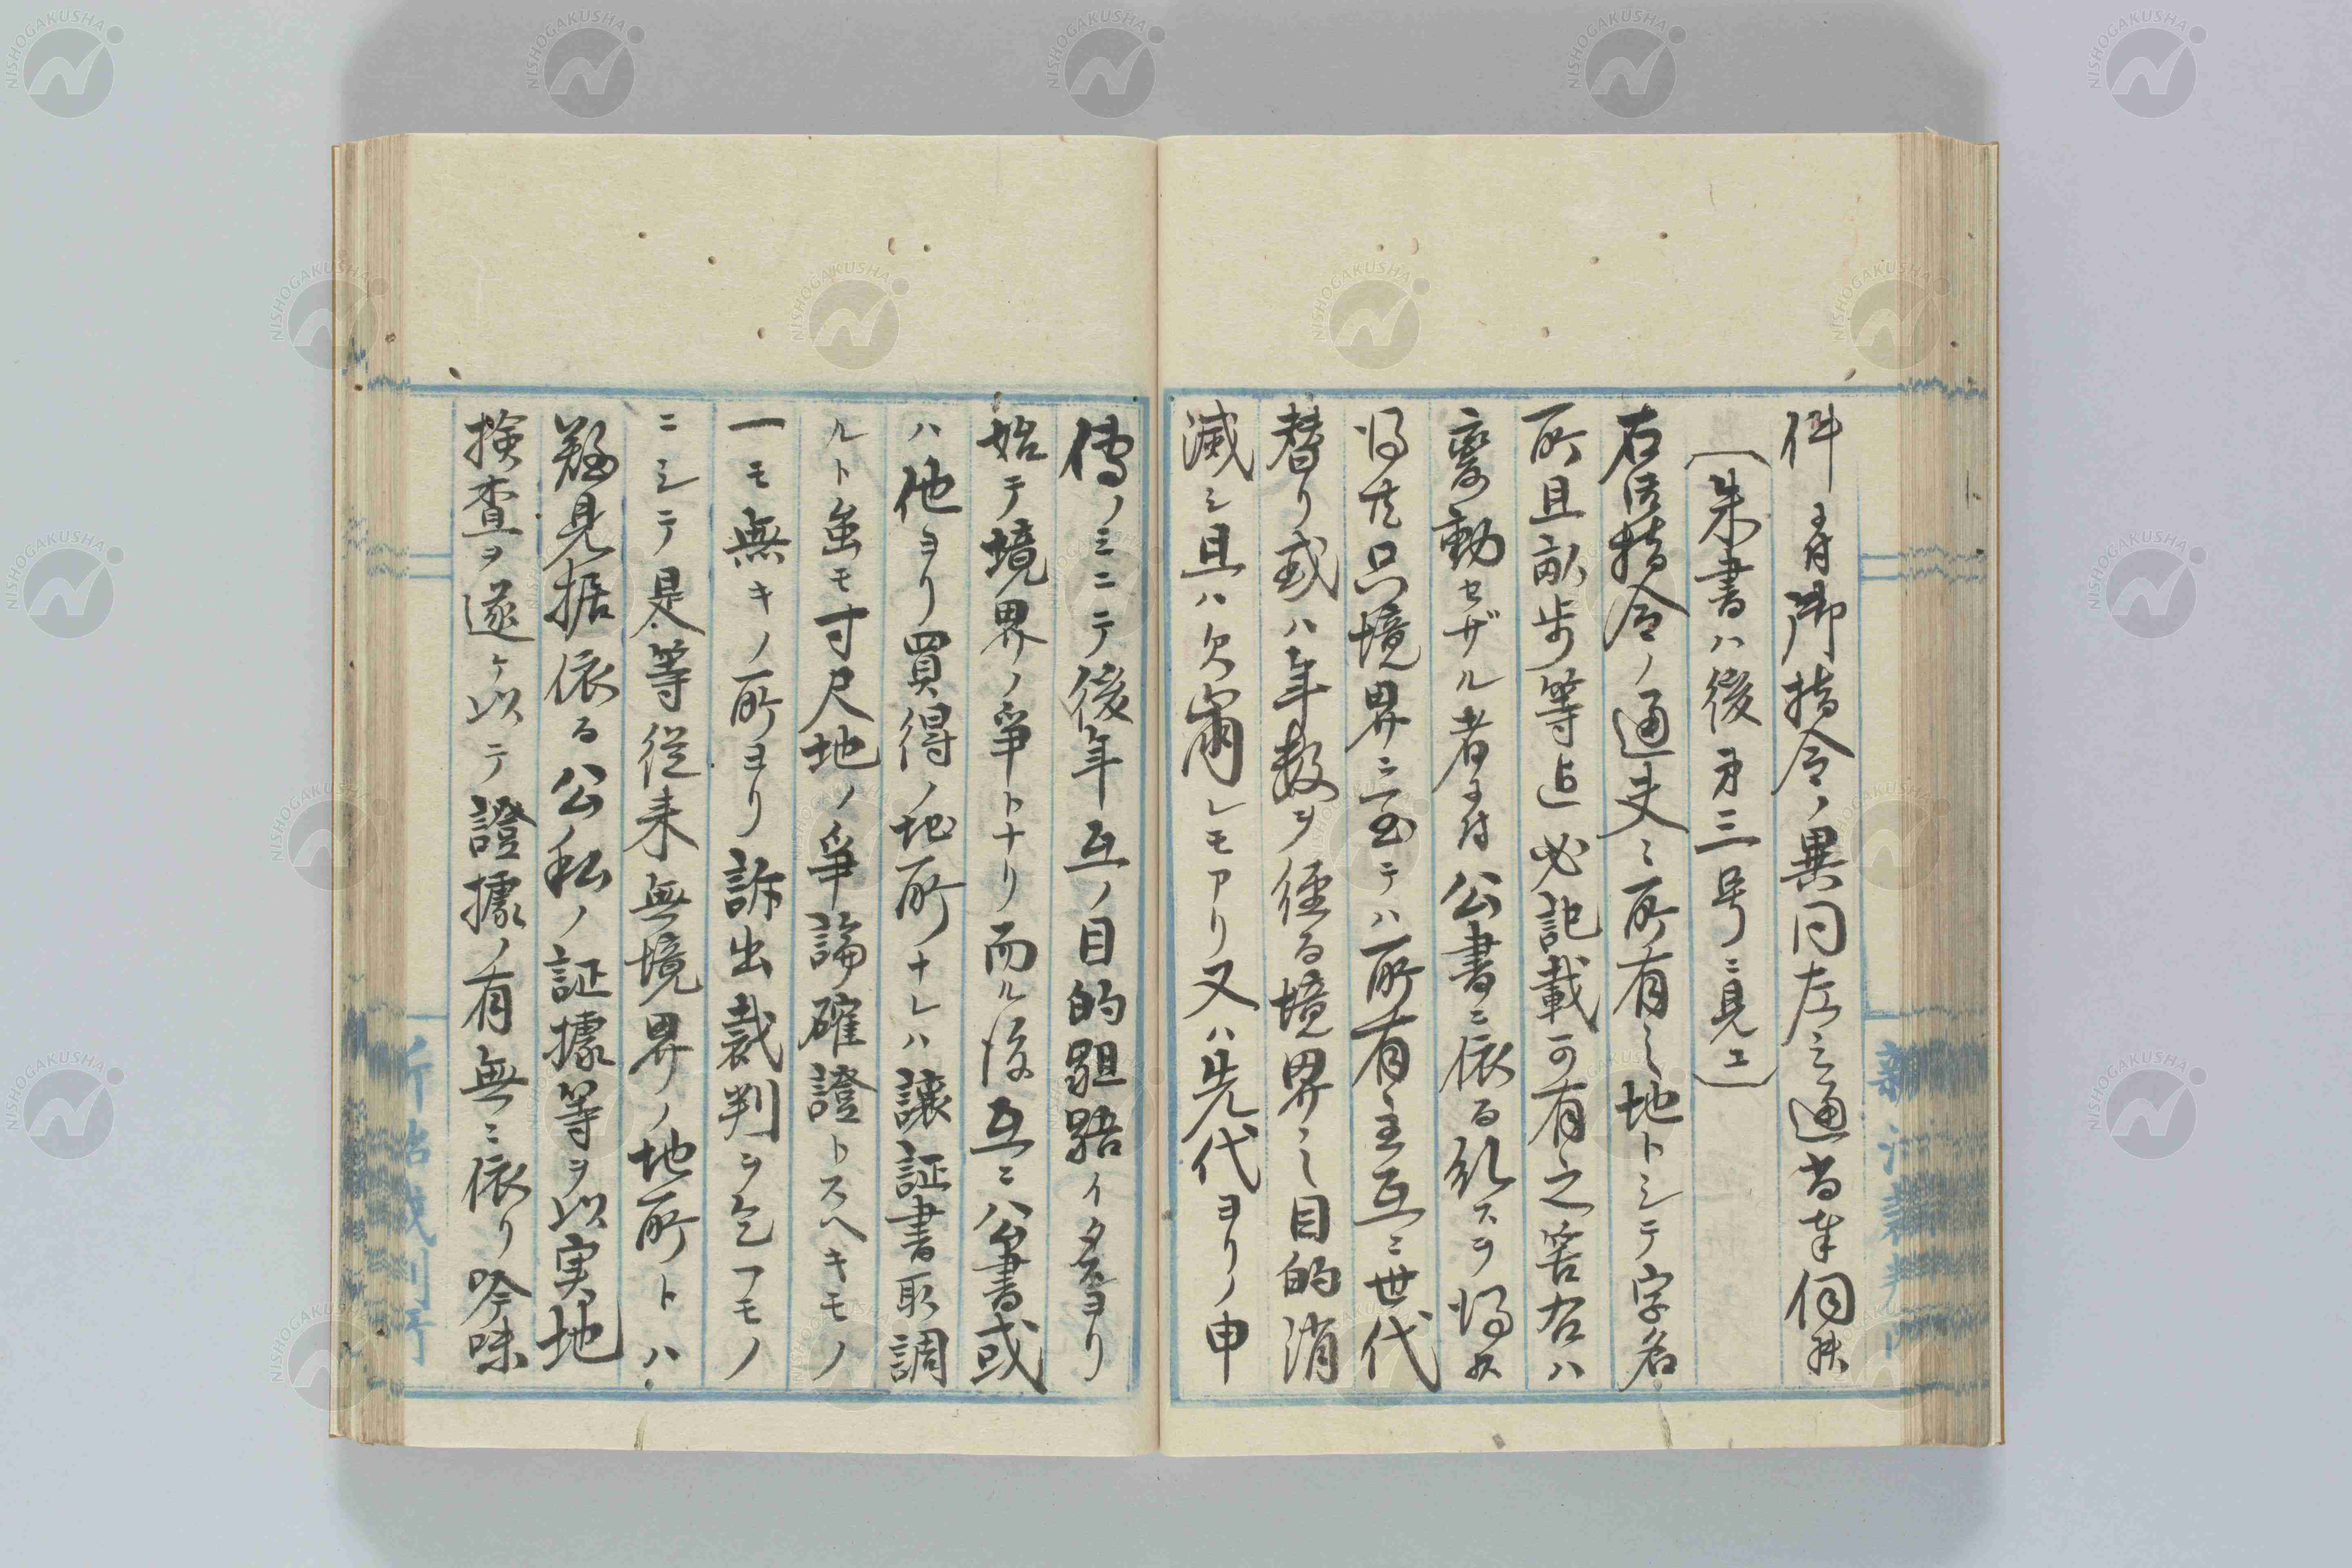 件ニ付御指令ノ異同左之通尚奉伺候
〔朱書ハ後第三号ニ見エ〕
右活指令ノ通夫々所有之地トシテ字名
所且畝歩等迄必記載可有之筈右ハ
変動セザル者ニ付公書ニ依る糺スヲ得ヘ
得共只境界ニ至テハ所有主互ニ世代
替り或ハ年数ヲ径る境界之目的消
滅シ且ハ欠崩レモアリ又ハ先代ヨリノ申
傳ノミニテ後年互ノ目的齟齬イタスヨリ
始テ境界ノ爭トナリ而ル後互ニ公書或
ハ他ヨリ買得ノ地所ナレハ譲証書取調
ルト虽モ寸尺地ノ爭論確證トスヘキモノ
一モ無キノ所ヨリ訴出裁判ヲ乞フモノ
ニシテ是等従来無境界ノ地所トハ
難見据依る公私ノ証據等ヲ以実地
検査ヲ遂ケ以テ證據ノ有無ニ依り吟味